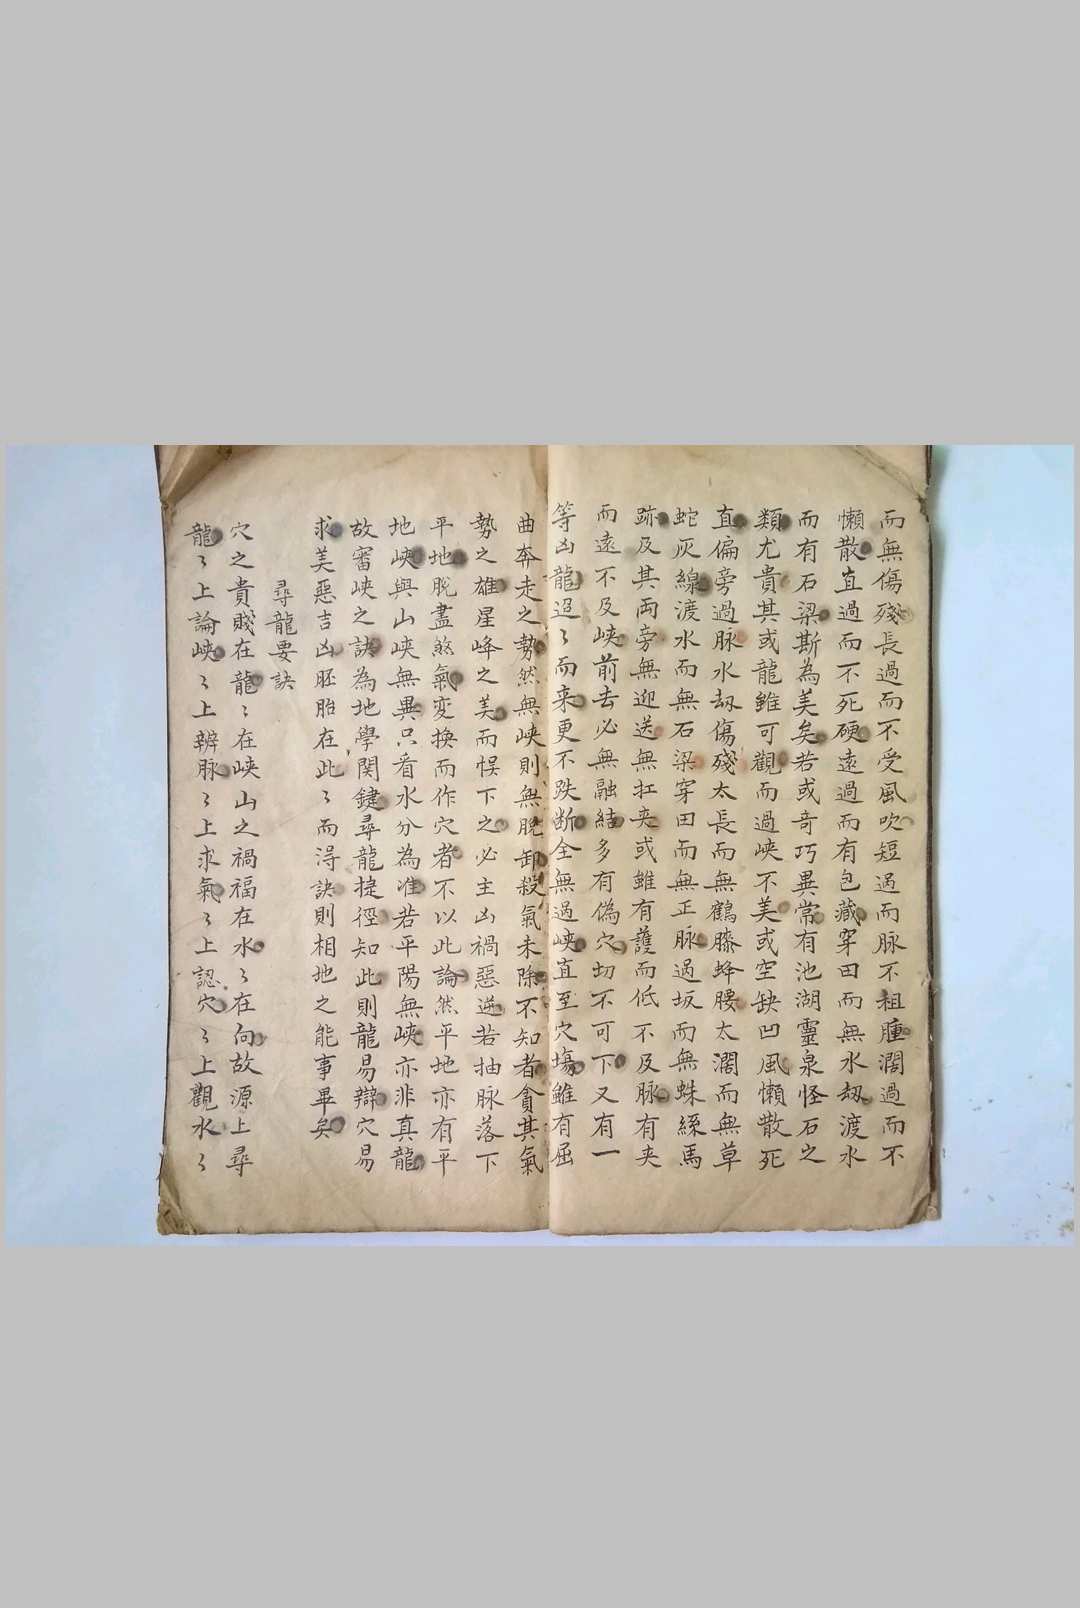 而無傷殘長過而不受風吹短過而脉不粗腫濶過而不
懶散直過而不死硬遠過而有包藏穿田而無水刼渡水
而有石梁斯為美矣若或奇巧異常有池湖靈泉怪石之
類尤貴其或龍雖可觀而過峡不美或空缺凹風懶散死
直偏旁過脉水刼傷殘太長而無鶴膝蜂腰太濶而無草
蛇灰線渡水而無石梁穿田而無正脉過坂而無蛛絲馬
跡及其両旁無迎送無扛夾或雖有護而低不及脉有夾
而遠不及峡前去必無融結多有偽穴切不可下又有一
等凶龍迢〻而来更不跌断全無過峡直至穴塲雖有屈
曲奔走之勢然無峡則無脫卸殺氣未除不知者貪其氣
勢之雄星峰之美而悞下之必主凶禍惡逆若抽脉落下
平地脫盡煞氣変換而作穴者不以此論然平地亦有平
地峡與山峡無異只看水分為准若平陽無峡亦非真龍
故審峡之訣為地學関鍵尋龍捷徑知此則龍易辯穴易
求美惡吉凶胚胎在此〻而淂訣則相地之能事畢矣
尋龍要訣
穴之貴賤在龍〻在峡山之禍福在水〻在向故源上尋
龍〻上論峡〻上辨脉〻上求氣〻上認穴〻上觀水〻